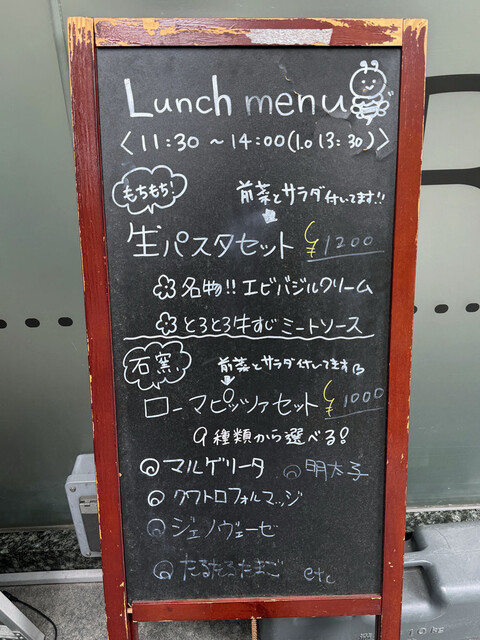 Lunch menu
<11:30 ~ 14:00(l.o 13:30)>
もちもち!
前菜とサラダ付いてます!!
生パスタセット ¥1200
名物!! エビバジルクリーム
とろとろ牛すじミートソース
石窯
前菜とサラダ付いてます
ローマピッツァセット ¥1000
9種類から選べる!
マルゲリータ 明太子
クワトロフォルマッジ
ジェノヴェーゼ
たるたるたまご etc